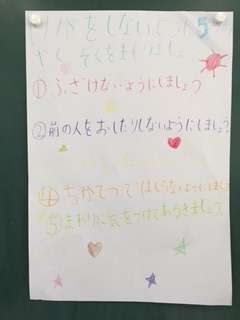 けがをしない 5
やくそくをまもりましょう
①ふざけないようにしましょう
②前の人をおしたりしないようにしましょう
④ちかてつではしらないようにしましょう
⑤まわりに気をつけてあるきましょう